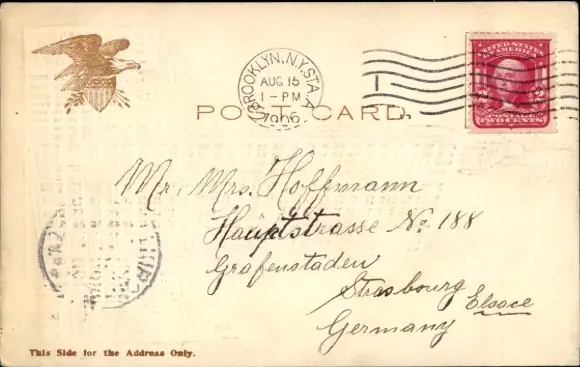 BROOKLYN, N.Y. STA. A
AUG 15
1-PM
1906
UNITED STATES
OF AMERICA
POSTAGE
TWO CENTS
POST CARD.
Mr. Mrs. Hoffmann
Hauptstrasse No. 188
Grafenstaden
Strasbourg
Elsace
Germany
This Side for the Address Only.